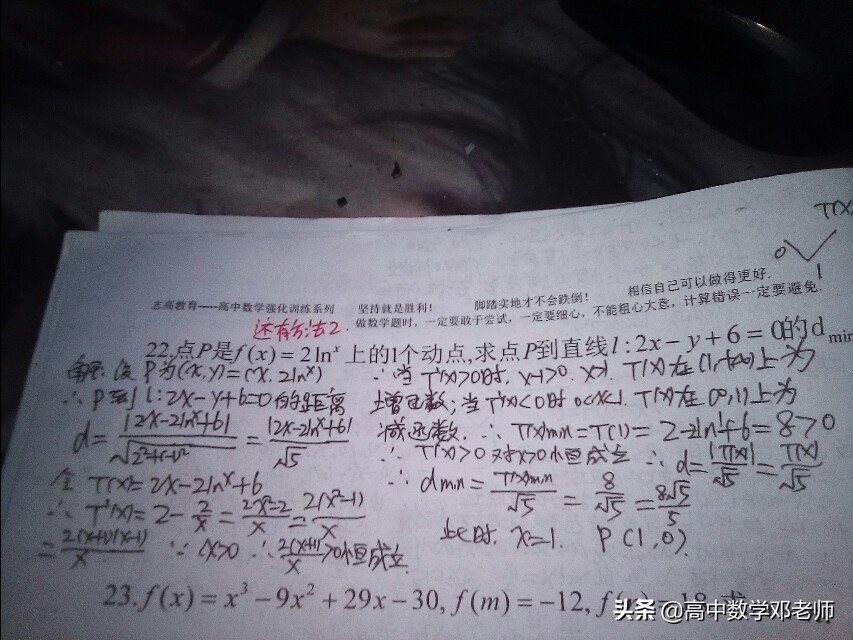 T(x)
0
1
志高教育——高中数学强化训练系列 坚持就是胜利! 脚踏实地才不会跌倒! 相信自己可以做得更好.
还有方法2. 做数学题时,一定要敢于尝试,一定要细心,不能粗心大意,计算错误一定要避免.
22.点P是f(x)=2lnˣ上的1个动点,求点P到直线l:2x-y+6=0的d min
解:设P为(x,y)=(x,2lnˣ)
∴P到l:2x-y+6=0的距离
d=|2x-2lnˣ+6|/√(2²+(-1)²)=|2x-2lnˣ+6|/√5
令T(x)=2x-2lnˣ+6
∴T'(x)=2-2/x=(2x²-2)/x=2(x²-1)/x
=2(x+1)(x-1)/x ∵x>0 ∴2(x+1)/x>0恒成立
∴当T'(x)>0时,x-1>0,x>1,T(x)在(1,+∞)上为
增函数;当T'(x)<0时0<x<1.T(x)在(0,1)上为
减函数.∴T(x)min=T(1)=2-2ln1+6=8>0
∴T(x)>0对x>0恒成立 ∴d=|T(x)|/√5=T(x)/√5
∴dmin=T(x)min/√5=8/√5=8√5/5
此时,x=1. P(1,0).
23.f(x)=x³-9x²+29x-30,f(m)=-12,
头条 @高中数学邓老师